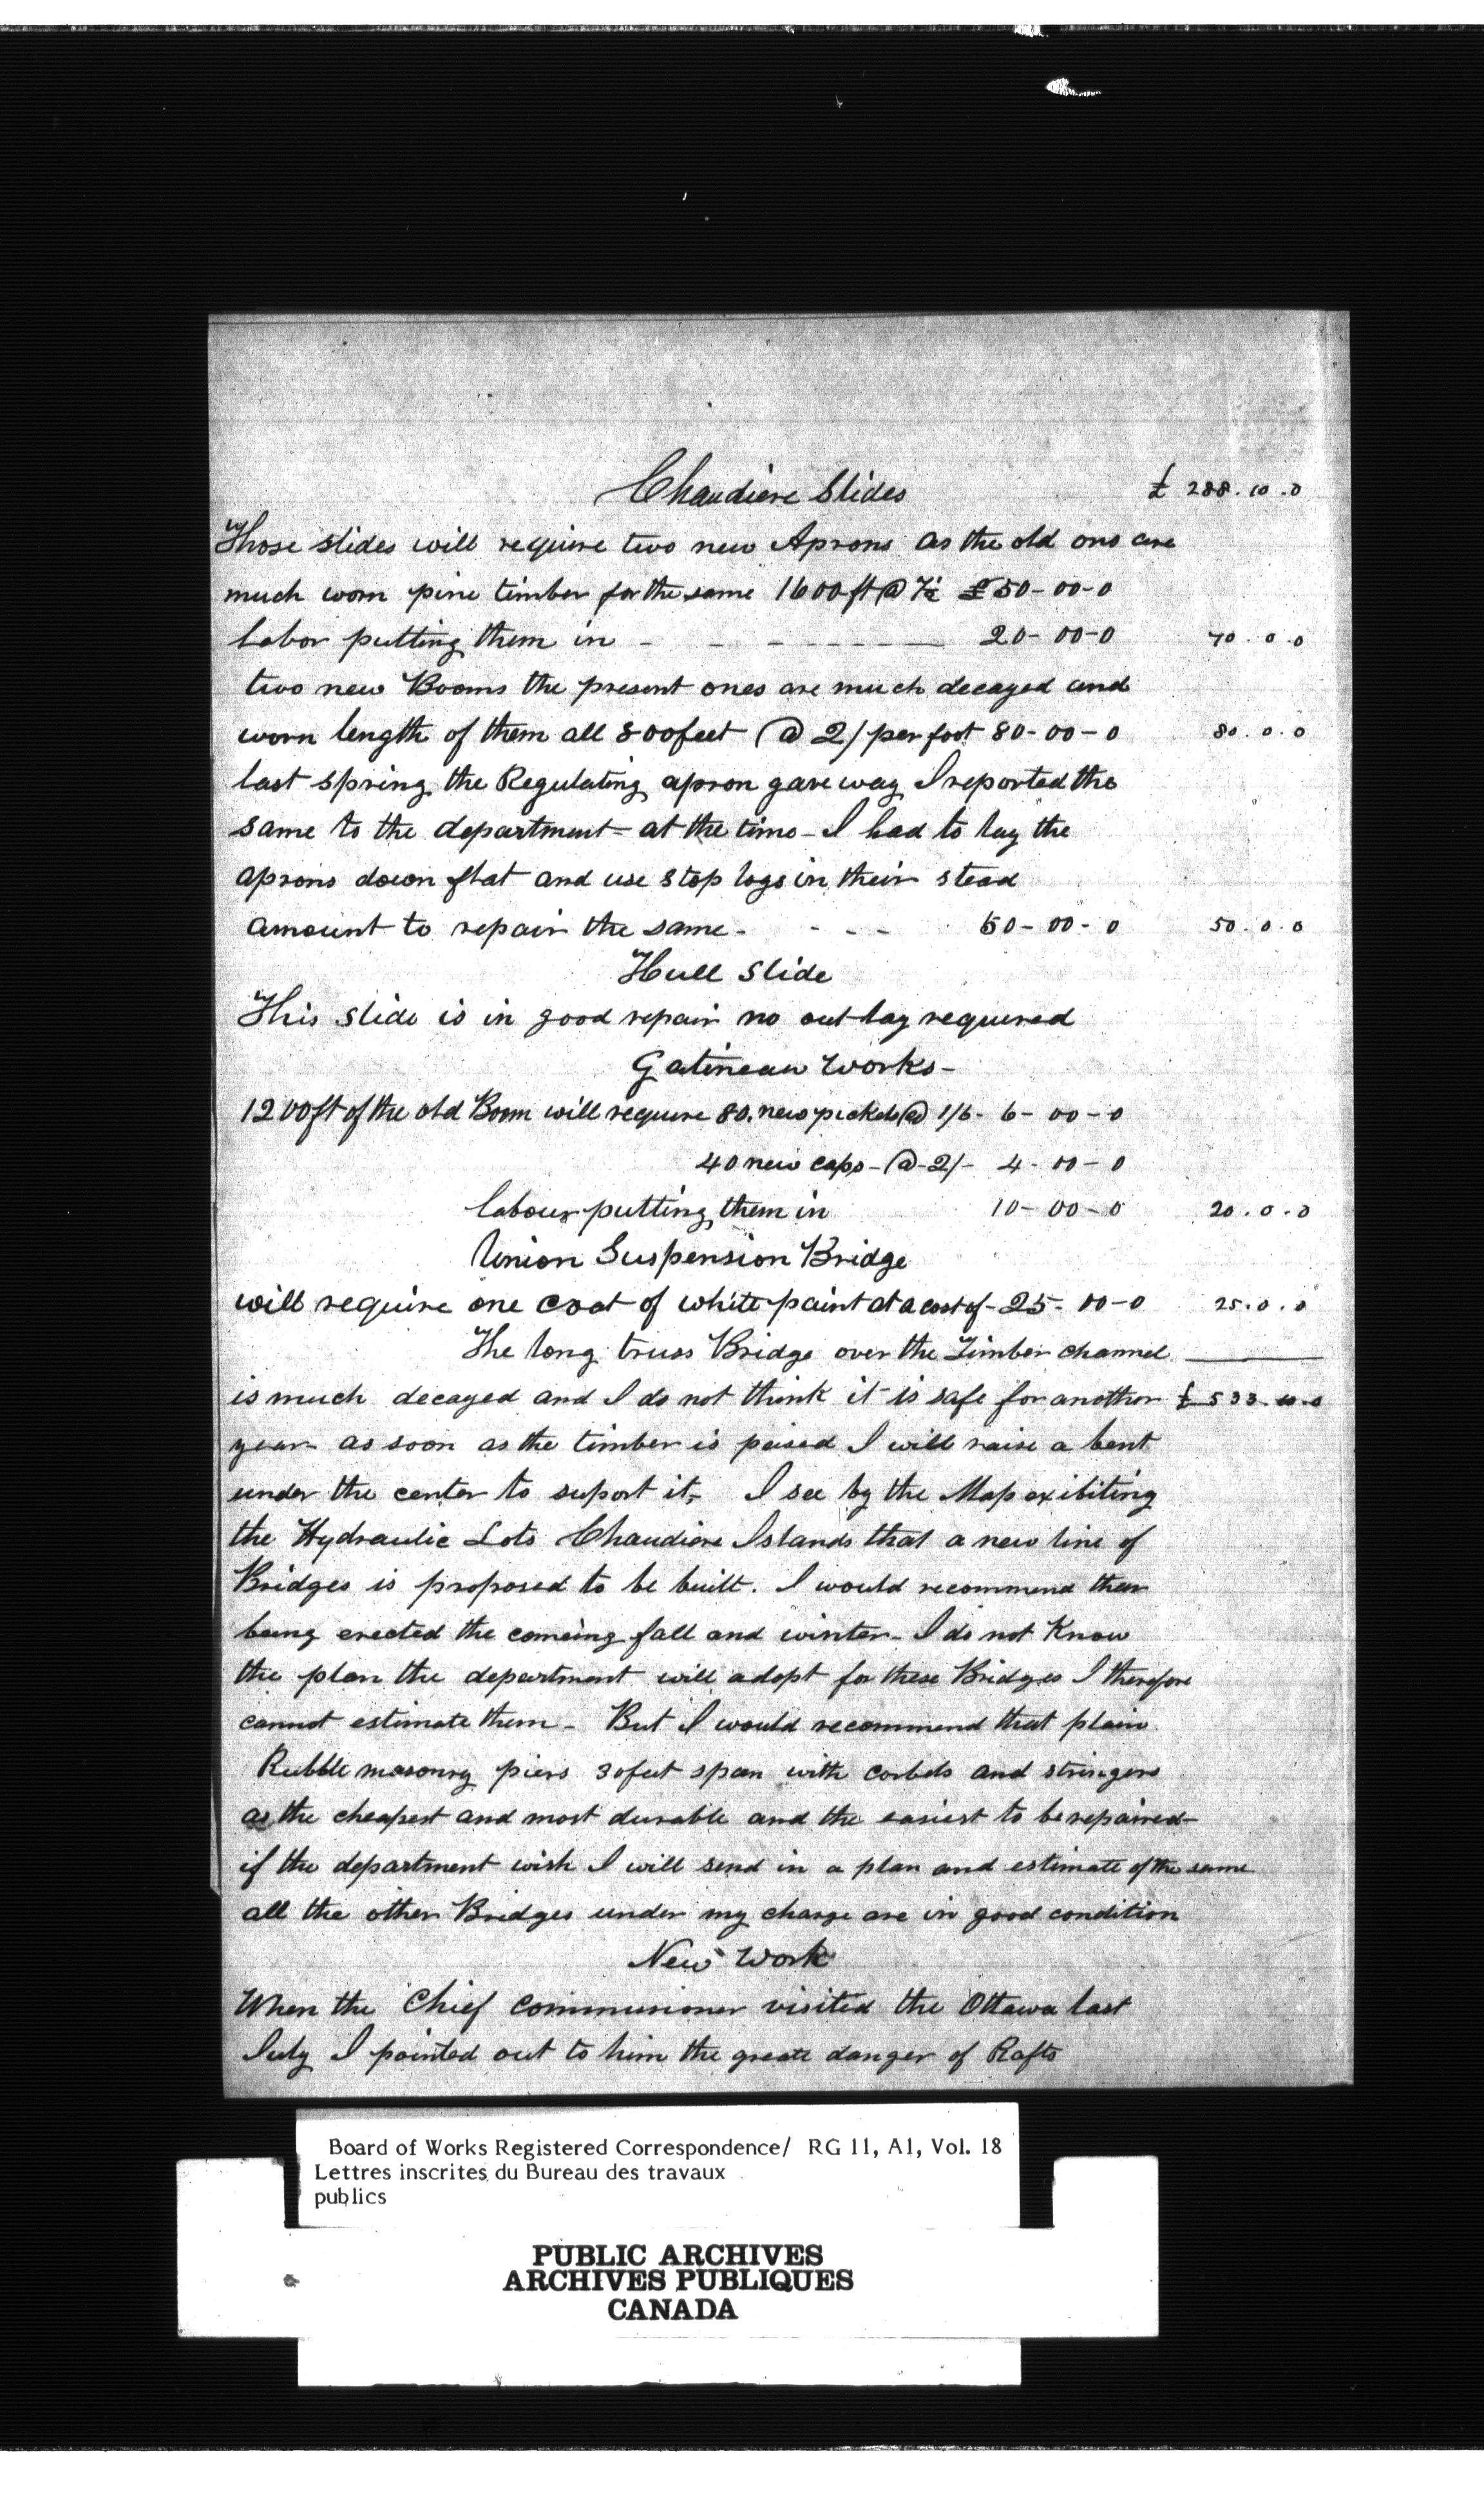 Chaudiere Slides £ 288.10.0
Those slides will require two new Aprons as the old ons are
much worn pine timber for the same 1600 ft @ 7½ £50-00-0
labor putting them in - - - - - - - 20-00-0 70.0.0
two new Booms the present ones are much decayed and
worn length of them all 800 feet @ 2/ per foot 80-00-0 80.0.0
last spring the Regulating apron gave way I reported the
same to the department at the time - I had to lay the
aprons down flat and use stop logs in their stead
amount to repair the same - - - - 50-00-0 50.0.0
Hull Slide
This slide is in good repair no outlay required
Gatineau Works -
1200 ft of the old Boom will require 80 new pickets @ 1/6 - 6-00-0
40 new caps - @ - 2/- 4-00-0
labour putting them in 10-00-0 20.0.0
Union Suspension Bridge
will require one coat of white paint at a cost of - 25-00-0 25.0.0
The long truss Bridge over the Timber channel
is much decayed and I do not think it is safe for another £ 533.10.0
year as soon as the timber is passed I will raise a bent
under the center to suport it, I see by the Map exibiting
the Hydraulic Lots Chaudiere Islands that a new line of
Bridges is proposed to be built. I would recommend their
being erected the comeing fall and winter - I do not Know
the plan the department will adopt for these Bridges I therefore
cannot estimate them - But I would recommend that plain
Rubble masonry piers 30 feet span with corbels and stringers
as the cheapest and most durable and the easiest to be repaired -
if the department wish I will send in a plan and estimate of the same
all the other Bridges under my charge are in good condition
New Work
When the Chief commissioner visited the Ottawa last
July I pointed out to him the greate danger of Rafts
Board of Works Registered Correspondence/ RG 11, A1, Vol. 18
Lettres inscrites du Bureau des travaux
publics
PUBLIC ARCHIVES
ARCHIVES PUBLIQUES
CANADA